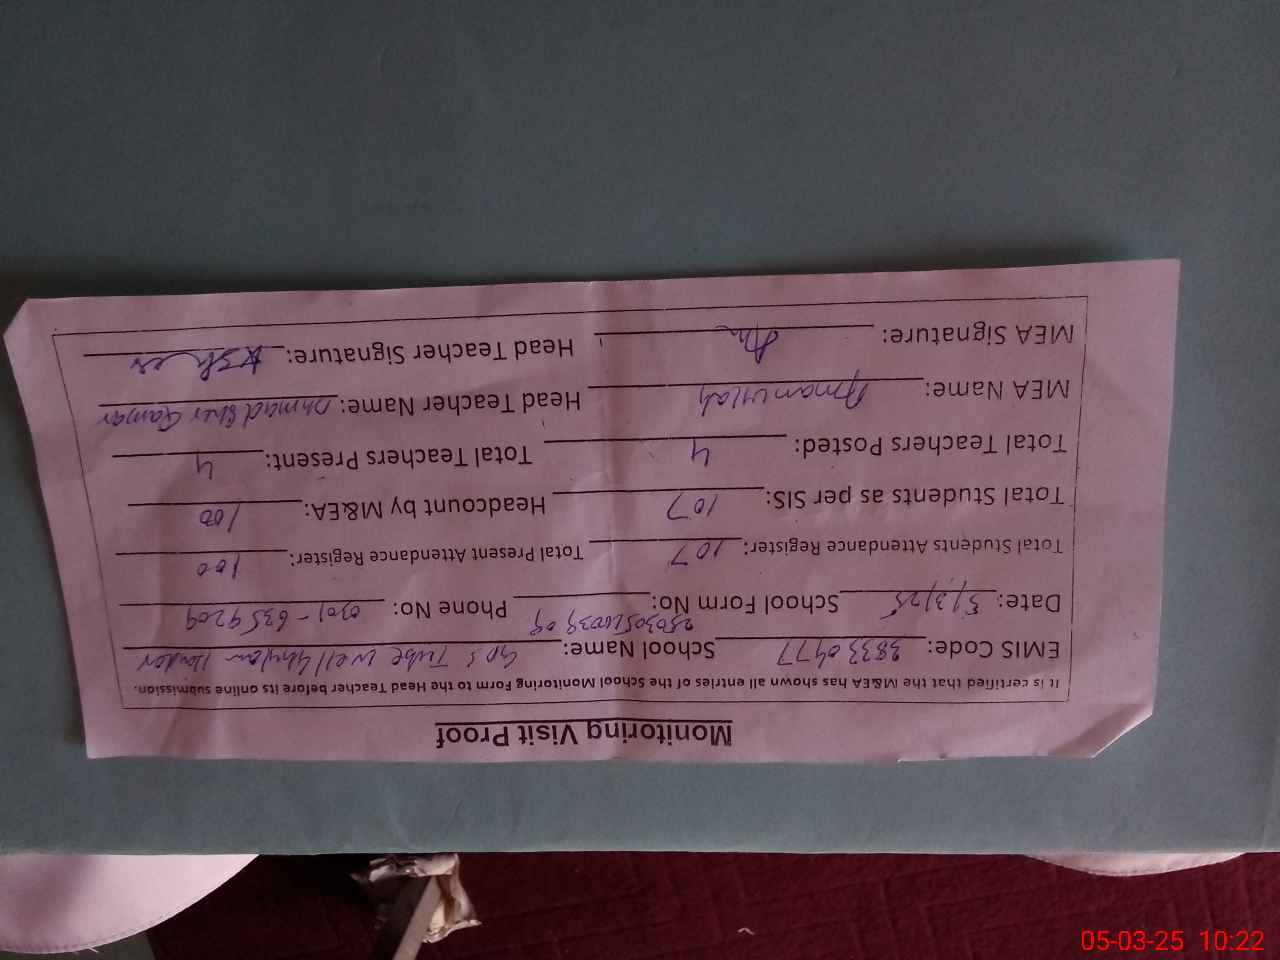 Monitoring Visit Proof
It is certified that the M&EA has shown all entries of the School Monitoring Form to the Head Teacher before its online submission.
EMIS Code: 38330477 School Name: GPS Tube Well
Date: 5/3/25 School Form No: Phone No: 0301-6359209
Total Students Attendance Register: 107 Total Present Attendance Register: 100
Total Students as per SIS: 107 Headcount by M&EA: 100
Total Teachers Posted: 4 Total Teachers Present: 4
MEA Name: Amanullah Head Teacher Name: Sher
MEA Signature: Head Teacher Signature:
05-03-25 10:22